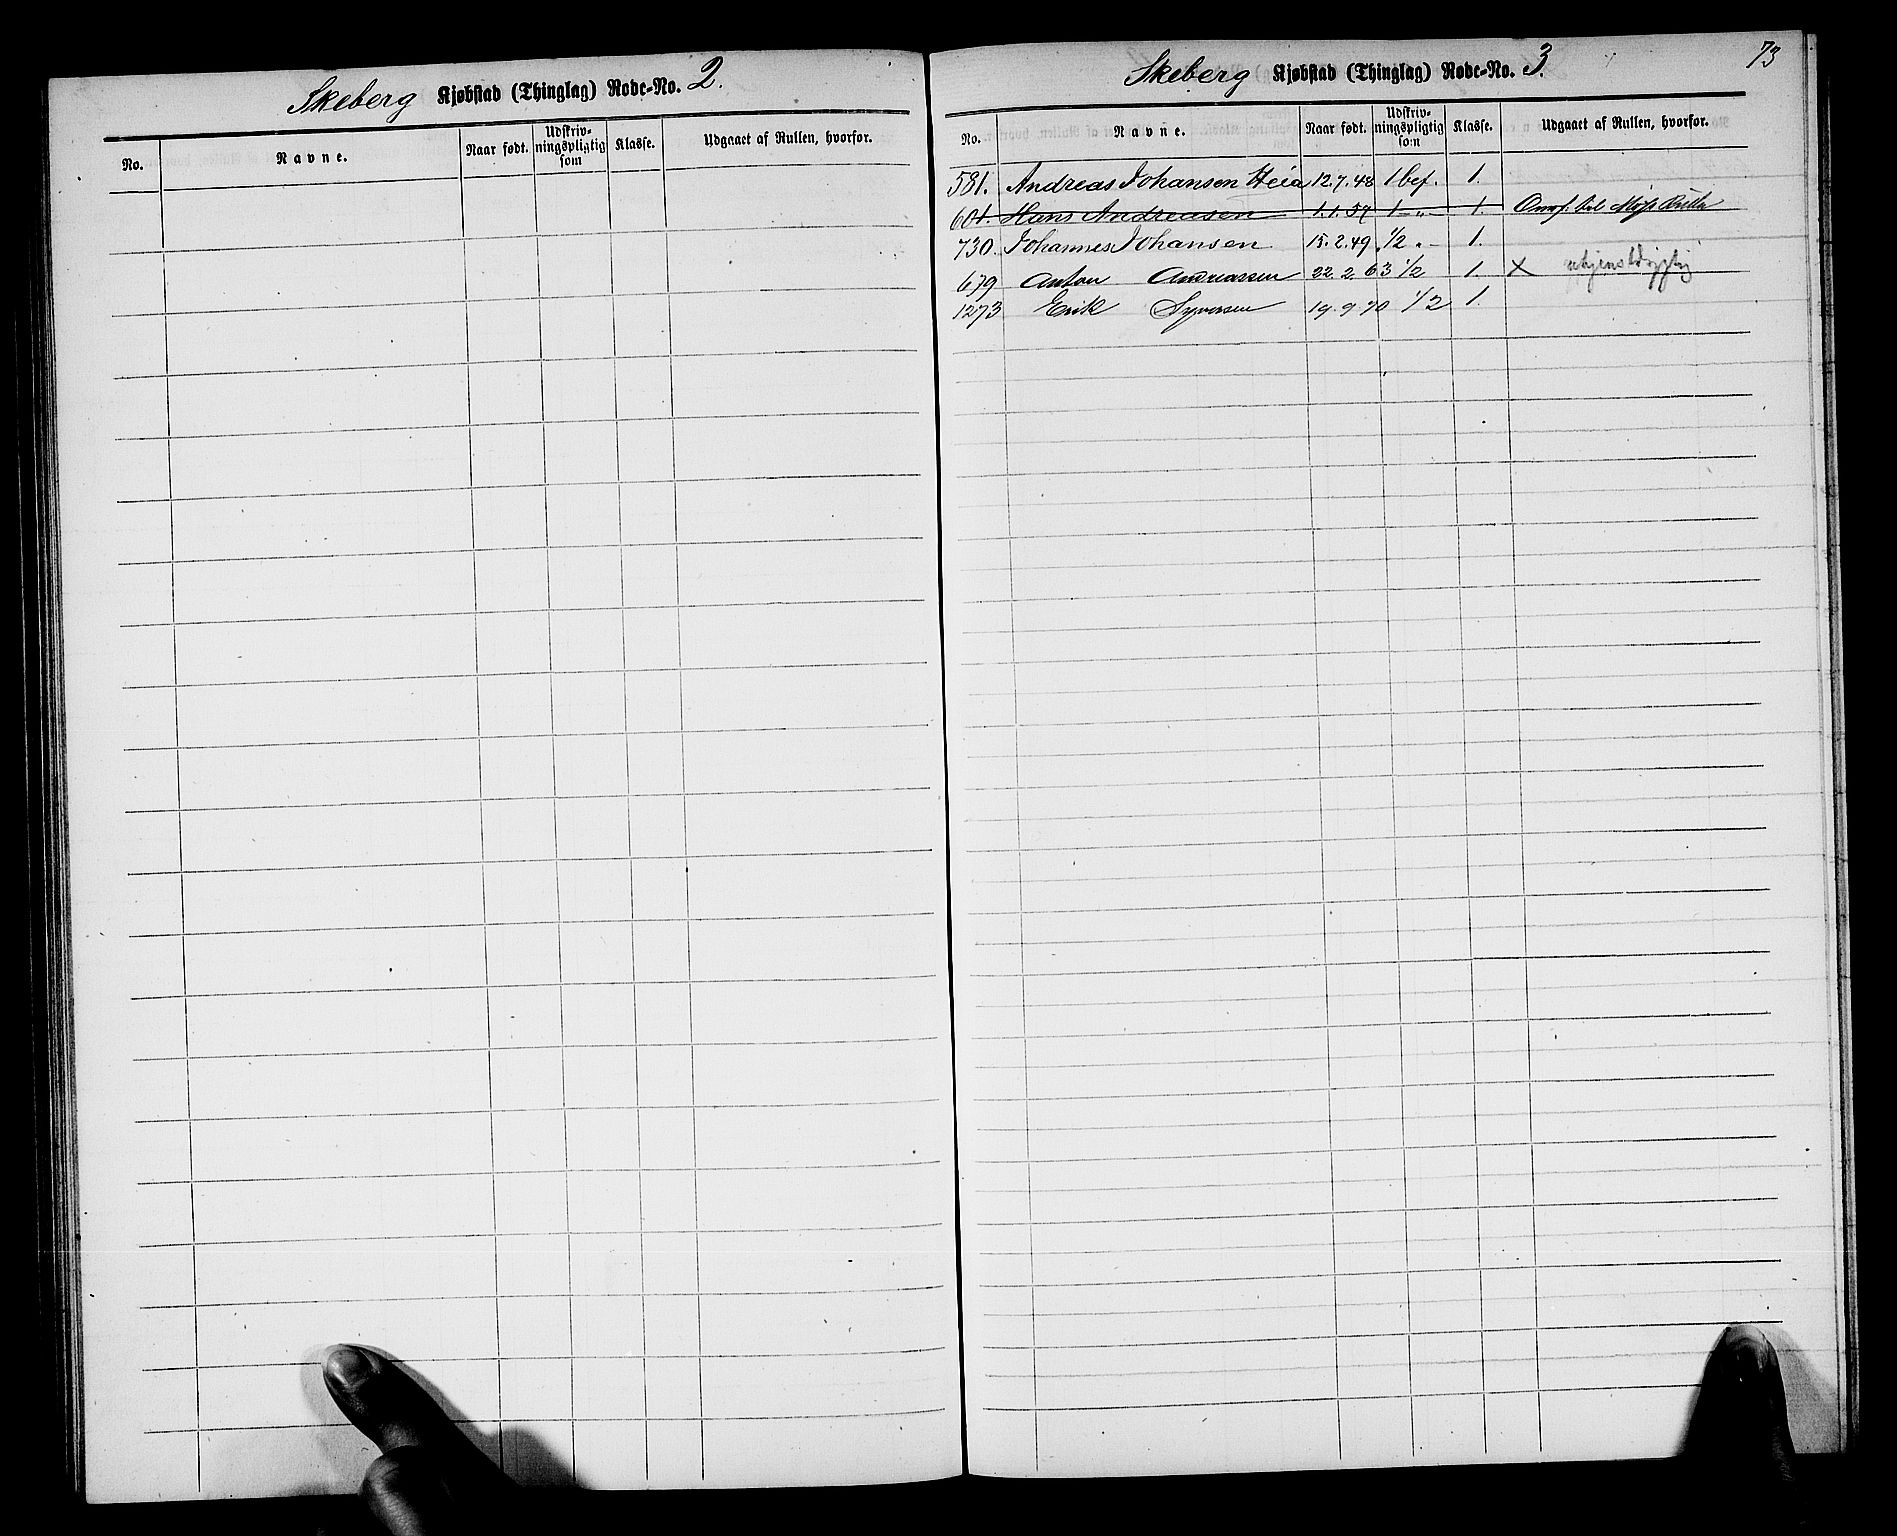 Skeberg Kjøbstad (Thinglag) Rode-No. 2.
No. Navne. Naar født. Udskriv-ningspligtig som Klasse. Udgaaet af Rullen, hvorfor.
73
Skeberg Kjøbstad (Thinglag) Rode-No. 3.
No. Navne. Naar født. Udskriv-ningspligtig som Klasse. Udgaaet af Rullen, hvorfor.
581. Andreas Johansen Heia 12.7.48 1 bef. 1.
601. Hans Andreasen 1.1.57 1 -"- 1. til Moss Rulle
730. Johannes Johansen 15.2.49 1/2 "- 1.
679 Anton Andreassen 22.2 63 1/2 1. X utjenstdygtig
1273 Erik Syversen 19.9 70 1/2 1.